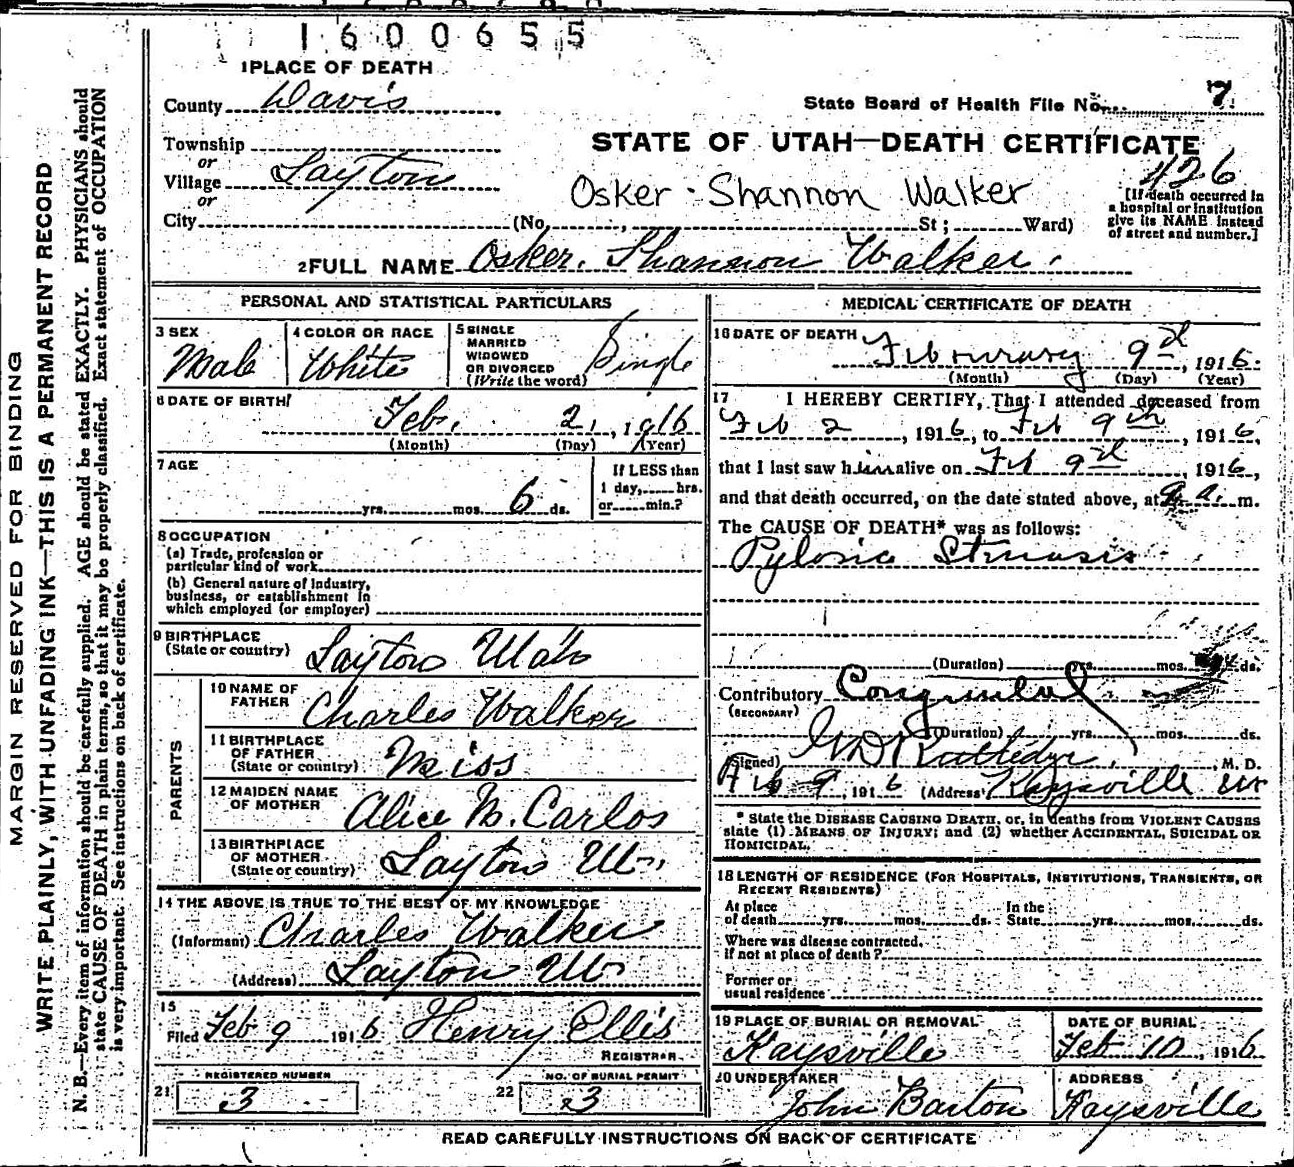 1600655
1 PLACE OF DEATH
County Davis
State Board of Health File No. 7
Township
or
Village Layton
or
City (No. , St; Ward)
STATE OF UTAH—DEATH CERTIFICATE
426
Osker Shannon Walker
[If death occurred in
a hospital or institution
give its NAME instead
of street and number.]
2 FULL NAME Osker. Shannon Walker.
PERSONAL AND STATISTICAL PARTICULARS
3 SEX
Male
4 COLOR OR RACE
White
5 SINGLE
MARRIED
WIDOWED
OR DIVORCED
(Write the word)
Single
6 DATE OF BIRTH
Feb. 2, 1916
(Month) (Day) (Year)
7 AGE
yrs. mos. 6 ds.
If LESS than
1 day, hrs.
or min.?
8 OCCUPATION
(a) Trade, profession or
particular kind of work
(b) General nature of industry,
business, or establishment in
which employed (or employer)
9 BIRTHPLACE
(State or country) Layton Utah
PARENTS
10 NAME OF
FATHER Charles Walker
11 BIRTHPLACE
OF FATHER
(State or country) Miss
12 MAIDEN NAME
OF MOTHER Alice M. Carlos
13 BIRTHPLACE
OF MOTHER
(State or country) Layton Ut.
14 THE ABOVE IS TRUE TO THE BEST OF MY KNOWLEDGE
(Informant) Charles Walker
(Address) Layton Ut
15
Filed Feb 9 1916 Henry Ellis
REGISTRAR
21 REGISTERED NUMBER
3
22 NO. OF BURIAL PERMIT
3
MEDICAL CERTIFICATE OF DEATH
16 DATE OF DEATH
February 9th, 1916.
(Month) (Day) (Year)
17 I HEREBY CERTIFY, That I attended deceased from
Feb 2, 1916, to Feb 9th, 1916,
that I last saw him alive on Feb 9th, 1916,
and that death occurred, on the date stated above, at a. m.
The CAUSE OF DEATH* was as follows:
Pyloric Stenosis
(Duration) yrs. mos. ds.
Contributory Congenital
(SECONDARY)
(Duration) yrs. mos. ds.
(Signed) , M. D.
Feb 9, 1916 (Address) Kaysville Ut
* State the DISEASE CAUSING DEATH, or, in deaths from VIOLENT CAUSES
state (1) MEANS OF INJURY; and (2) whether ACCIDENTAL, SUICIDAL OR
HOMICIDAL.
18 LENGTH OF RESIDENCE (FOR HOSPITALS, INSTITUTIONS, TRANSIENTS, OR
RECENT RESIDENTS)
At place
of death yrs. mos. ds.
In the
State yrs. mos. ds.
Where was disease contracted,
if not at place of death?
Former or
usual residence
19 PLACE OF BURIAL OR REMOVAL
Kaysville
DATE OF BURIAL
Feb 10, 1916
20 UNDERTAKER
John Barton
ADDRESS
Kaysville
READ CAREFULLY INSTRUCTIONS ON BACK OF CERTIFICATE
MARGIN RESERVED FOR BINDING
WRITE PLAINLY, WITH UNFADING INK—THIS IS A PERMANENT RECORD
N. B.—Every item of information should be carefully supplied. AGE should be stated EXACTLY. PHYSICIANS should
state CAUSE OF DEATH in plain terms, so that it may be properly classified. Exact statement of OCCUPATION
is very important. See instructions on back of certificate.